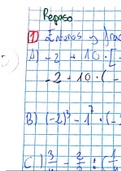 Repaso
1 Enteros y frac
A) -2 + 10 · [-
-2 - 10 · (-
B) (-2)³ - 1⁷ · (-
C) 3/4 - 2/3 : (1/